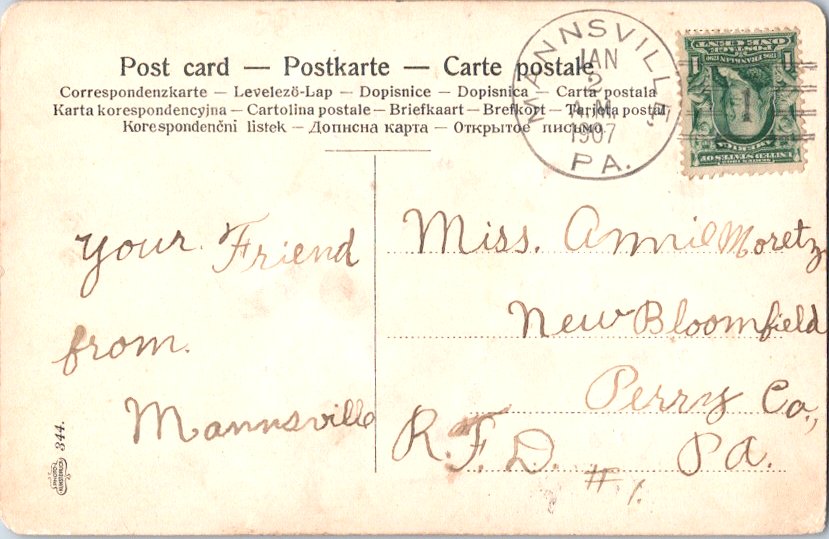 Post card — Postkarte — Carte postale
Correspondenzkarte — Levelező-Lap — Dopisnice — Dopisnica — Carta postala
Karta korespondencyjna — Cartolina postale — Briefkaart — Brefkort — Tarjeta postal
Korespondenční listek — Дописна карта — Открытое письмо
MANNSVILLE
JAN
2
A.M.
1907
PA.
ONE CENT
POSTAGE
1 1
1
FRANKLIN
AMERICA
UNITED STATES OF
Your Friend
from.
Mannsville
Miss. Annie Moretz
New Bloomfield
Perry Co.,
R.F.D. #1. Pa.
344.